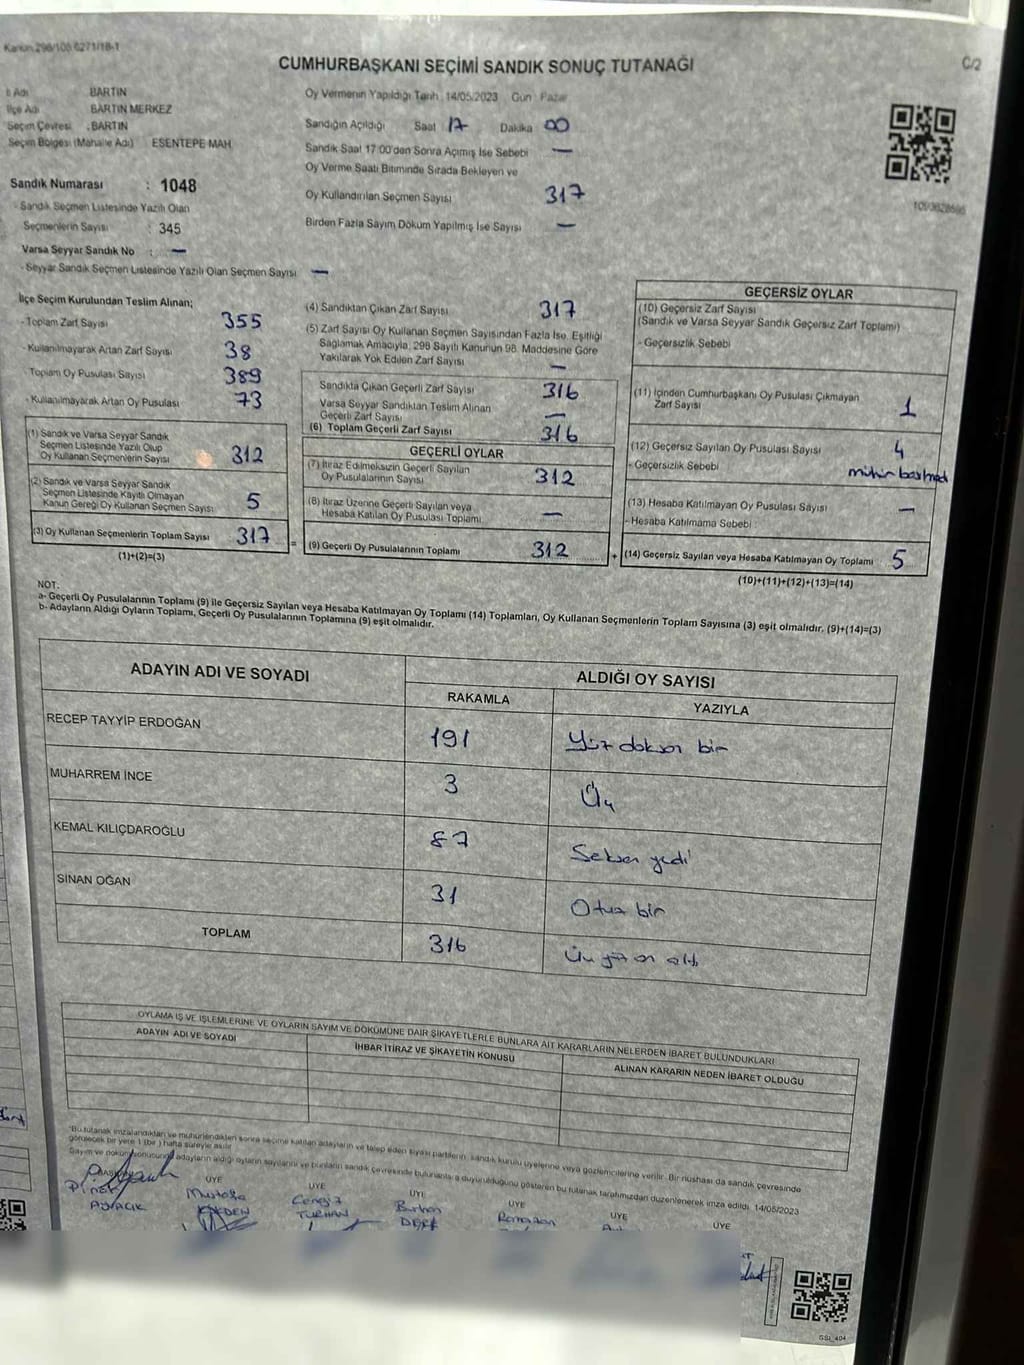 Kanun 298/105 6271/18-1
CUMHURBAŞKANI SEÇİMİ SANDIK SONUÇ TUTANAĞI
C/2
İl Adı BARTIN
İlçe Adı BARTIN MERKEZ
Seçim Çevresi : BARTIN
Seçim Bölgesi (Mahalle Adı) ESENTEPE MAH
Sandık Numarası : 1048
- Sandık Seçmen Listesinde Yazılı Olan
Seçmenlerin Sayısı : 345
Varsa Seyyar Sandık No : —
- Seyyar Sandık Seçmen Listesinde Yazılı Olan Seçmen Sayısı —
Oy Vermenin Yapıldığı Tarih 14/05/2023 Gün Pazar
Sandığın Açıldığı Saat 17 Dakika 00
Sandık Saat 17:00'den Sonra Açımış İse Sebebi —
Oy Verme Saati Bitiminde Sırada Bekleyen ve
Oy Kullandırılan Seçmen Sayısı 317
Birden Fazla Sayım Döküm Yapılmış İse Sayısı —
İlçe Seçim Kurulundan Teslim Alınan;
- Toplam Zarf Sayısı 355
- Kullanılmayarak Artan Zarf Sayısı 38
- Toplam Oy Pusulası Sayısı 389
- Kullanılmayarak Artan Oy Pusulası 73
(1) Sandık ve Varsa Seyyar Sandık
Seçmen Listesinde Yazılı Olup
Oy Kullanan Seçmenlerin Sayısı 312
(2) Sandık ve Varsa Seyyar Sandık
Seçmen Listesinde Kayıtlı Olmayan
Kanun Gereği Oy Kullanan Seçmen Sayısı 5
(3) Oy Kullanan Seçmenlerin Toplam Sayısı 317
(1)+(2)=(3)
=
(4) Sandıktan Çıkan Zarf Sayısı 317
(5) Zarf Sayısı Oy Kullanan Seçmen Sayısından Fazla İse, Eşitliği
Sağlamak Amacıyla, 298 Sayılı Kanunun 98. Maddesine Göre
Yakılarak Yok Edilen Zarf Sayısı —
Sandıkta Çıkan Geçerli Zarf Sayısı 316
Varsa Seyyar Sandıktan Teslim Alınan
Geçerli Zarf Sayısı —
(6) Toplam Geçerli Zarf Sayısı 316
GEÇERLİ OYLAR
(7) İtiraz Edilmeksizin Geçerli Sayılan
Oy Pusulalarının Sayısı 312
(8) İtiraz Üzerine Geçerli Sayılan veya
Hesaba Katılan Oy Pusulası Toplamı —
(9) Geçerli Oy Pusulalarının Toplamı 312
+
GEÇERSİZ OYLAR
(10) Geçersiz Zarf Sayısı
(Sandık ve Varsa Seyyar Sandık Geçersiz Zarf Toplamı)
- Geçersizlik Sebebi
(11) İçinden Cumhurbaşkanı Oy Pusulası Çıkmayan
Zarf Sayısı 1
(12) Geçersiz Sayılan Oy Pusulası Sayısı 4
- Geçersizlik Sebebi mühür basılmadı
(13) Hesaba Katılmayan Oy Pusulası Sayısı —
- Hesaba Katılmama Sebebi :
(14) Geçersiz Sayılan veya Hesaba Katılmayan Oy Toplamı 5
(10)+(11)+(12)+(13)=(14)
NOT:
a- Geçerli Oy Pusulalarının Toplamı (9) ile Geçersiz Sayılan veya Hesaba Katılmayan Oy Toplamı (14) Toplamları, Oy Kullanan Seçmenlerin Toplam Sayısına (3) eşit olmalıdır. (9)+(14)=(3)
b- Adayların Aldığı Oyların Toplamı, Geçerli Oy Pusulalarının Toplamına (9) eşit olmalıdır.
ADAYIN ADI VE SOYADI ALDIĞI OY SAYISI
RAKAMLA YAZIYLA
RECEP TAYYİP ERDOĞAN 191 Yüz doksan bir
MUHARREM İNCE 3 Üç
KEMAL KILIÇDAROĞLU 87 Seksen yedi
SİNAN OĞAN 31 Otuz bir
TOPLAM 316 Üç yüz on altı
OYLAMA İŞ VE İŞLEMLERİNE VE OYLARIN SAYIM VE DÖKÜMÜNE DAİR ŞİKAYETLERLE BUNLARA AİT KARARLARIN NELERDEN İBARET BULUNDUKLARI
ADAYIN ADI VE SOYADI İHBAR İTİRAZ VE ŞİKAYETİN KONUSU ALINAN KARARIN NEDEN İBARET OLDUĞU
*Bu tutanak imzalandıktan ve mühürlendikten sonra seçime katılan adayların ve talep eden siyasi partilerin, sandık kurulu üyelerine veya gözlemcilerine verilir. Bir nüshası da sandık çevresinde
görülecek bir yere 1 (bir) hafta süreyle asılır.
Sayım ve döküm sonucunda adayların aldığı oyların sayılarını ve bunların sandık çevresinde bulunanlara duyurulduğunu gösteren bu tutanak tarafımızdan düzenlenerek imza edildi. 14/05/2023
BAŞKAN ÜYE ÜYE ÜYE ÜYE ÜYE ÜYE
Pınar Mustafa Cengiz Burhan Ramazan
TURHAN
GSI_404